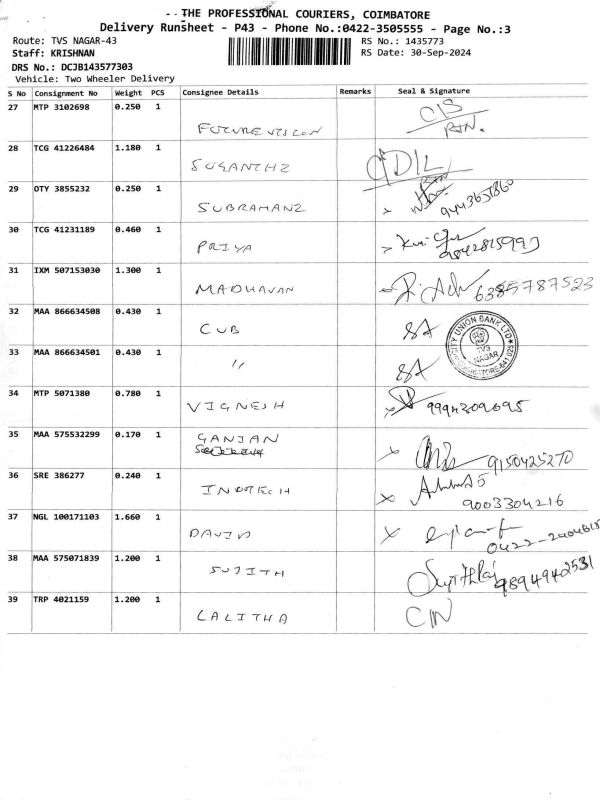 THE PROFESSIONAL COURIERS, COIMBATORE
Delivery Runsheet - P43 - Phone No.:0422-3505555 - Page No.:3
Route: TVS NAGAR-43 RS No.: 1435773
Staff: KRISHNAN RS Date: 30-Sep-2024
DRS No.: DCJB143577303
Vehicle: Two Wheeler Delivery
S No Consignment No Weight PCS Consignee Details Remarks Seal & Signature
27 MTP 3102698 0.250 1
FUTURE VISION
28 TCG 41226484 1.180 1
SUGANTHI
29 OTY 3855232 0.250 1
SUBRAMANI 9443651860
30 TCG 41231189 0.460 1
PRIYA 9842815997
31 IXM 507153030 1.300 1
MADHAVAN 6385787523
32 MAA 866634508 0.430 1
CUB
CITY UNION BANK LTD
TVS NAGAR
33 MAA 866634501 0.430 1
"
34 MTP 5071380 0.780 1
VIGNESH 9994309695
35 MAA 575532299 0.170 1
GANJAN
9150425270
36 SRE 386277 0.240 1
INDTECH 9003304216
37 NGL 100171103 1.660 1
DAVID
38 MAA 575071839 1.200 1
SUJITH 9894942531
39 TRP 4021159 1.200 1
LALITHA